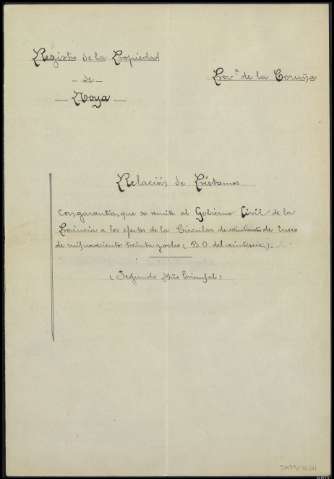 Registro de la Propiedad
de
Noya
Prov.ª de la Coruña
Relación de Préstamos
Con garantía, que se remite al Gobierno Civil de la
Provincia a los efectos de la Circular de veintiocho de Enero
de mil novecientos treinta y ocho (B.O. del veintiseis).
(Segundo Año Triunfal)